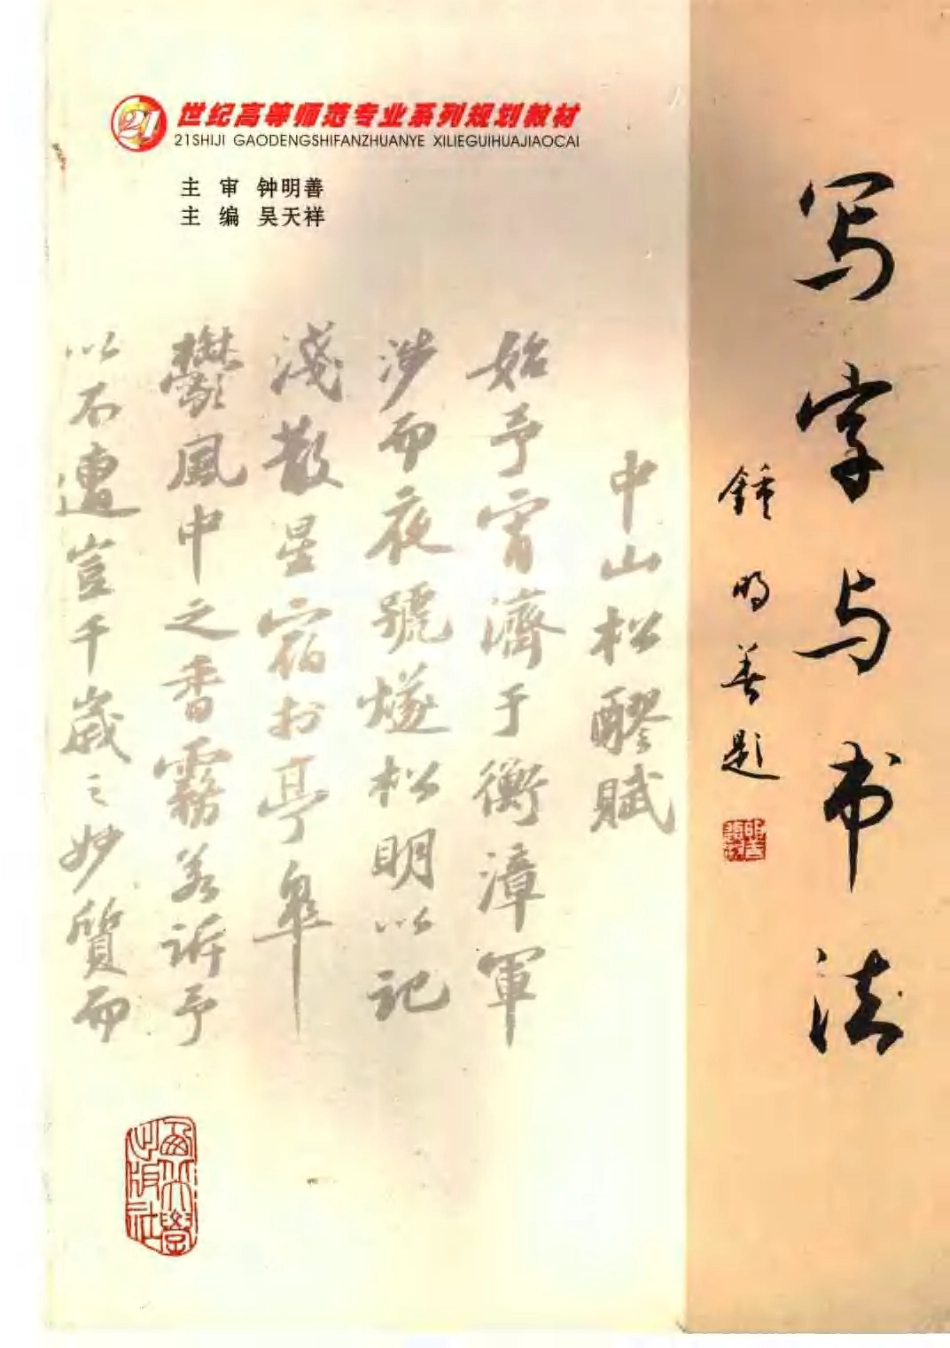 21 世纪高等师范专业系列规划教材
21SHIJI GAODENGSHIFANZHUANYE XILIEGUIHUAJIAOCAI
主 审 钟明善
主 编 吴天祥
写字与书法
鍾明善题
中山松醪賦
始予宵濟于衡漳軍
涉而夜號燧松明以記
淺散星宿於亭皐
鬱風中之香霧若訴予
以不遭豈千歲之妙質而
西北大学
出版社